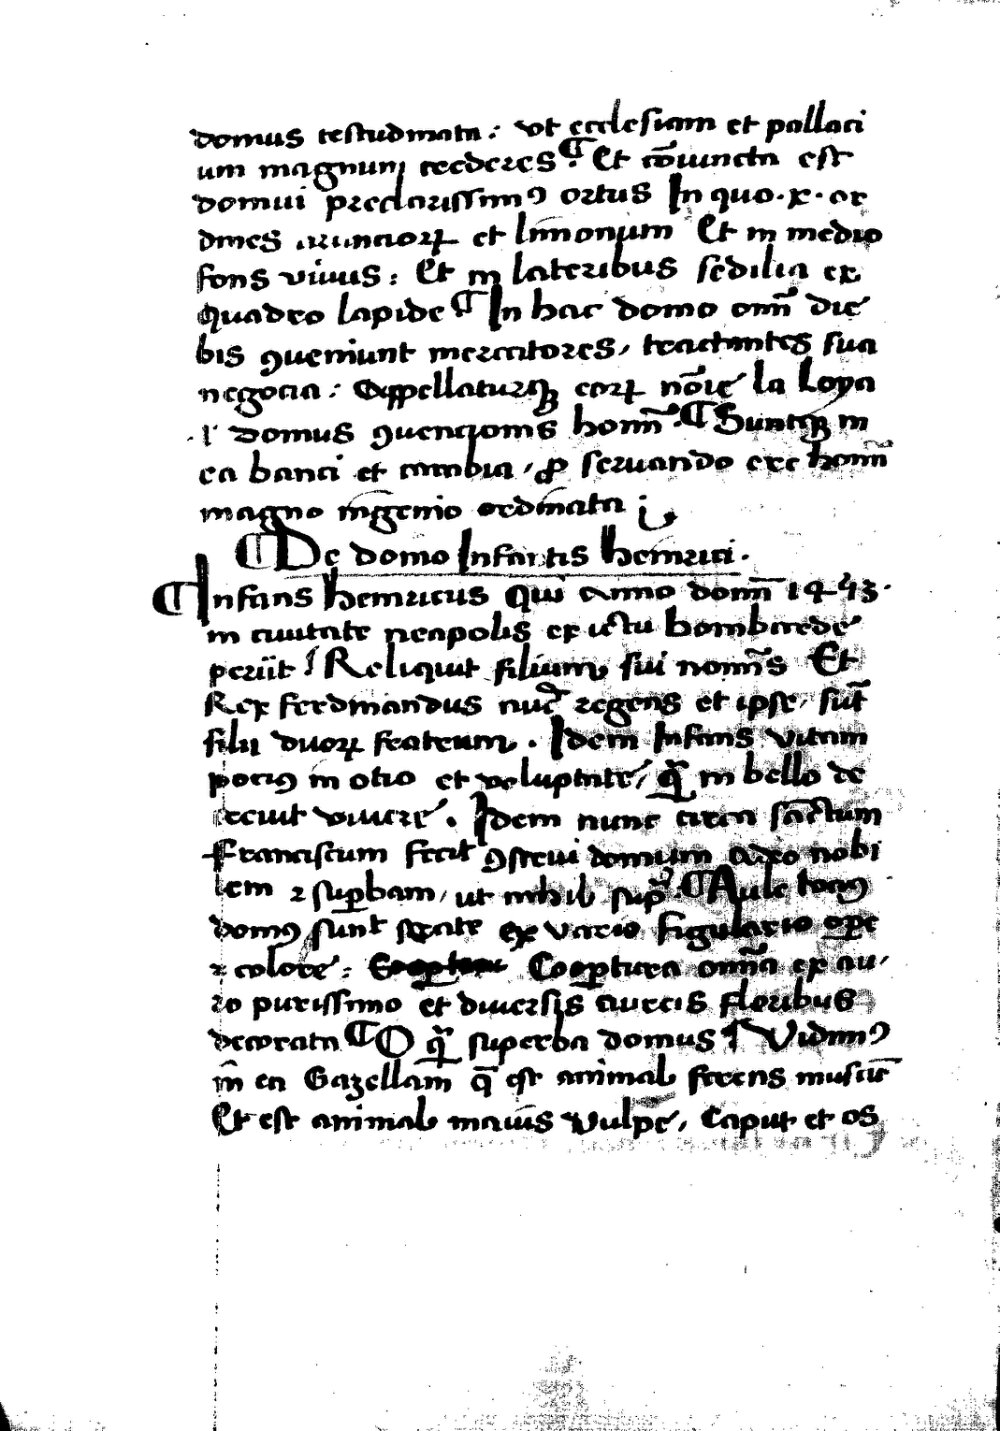 domus testudinata: vt ecclesiam et pallaci
um magnum crederes ¶ Et cōiuncta est
domui preclarissimꝰ ortus In quo .x. or
dines aranciorꝝ et limonum Et in medio
fons viuus: Et in lateribus sedilia ex
quadro lapide ¶ In hac domo omnī die
bis ꝯueniunt mercatores, tractantes sua
negocia: Appellaturqꝫ eorꝝ nōīe la Loya
.i. domus ꝯuencionis homīn. ¶ Suntqꝫ in
ea banci et cambia, ꝓ seruando ere homīn
magno īngenio ordināta
¶ De domo Infantis Heinrici.
¶ Infans Heinricus qui Anno domīn 1443.
in ciuitate neapolis ex ictu bombarde
periit Reliquit filium sui nomīs Et
Rex ferdinandus nūc regens et ipse, sūt
filii duorꝝ fratrum. Idem Infans vitam
pociꝰ in otio et voluptate, qͣꝫ in bello de
creuit viuere. Idem nunc circa sāctum
Franciscum fecit ꝯstrui domum adeo nobi
lem ⁊ suꝑbam, ut nihil supͣ ¶ Aule tociꝰ
domꝰ sunt strate ex vario figulario oꝑe
⁊ colore: Cooꝑtura omīa ex au,
ro purissimo et diuersis aureis floribus
decorata ¶ O qͣꝫ superba domus ¶ Vidimꝰ
īn ea Gazellam q̄ est animal ferens muscū
Et est animal maius vulpe, Caput et os